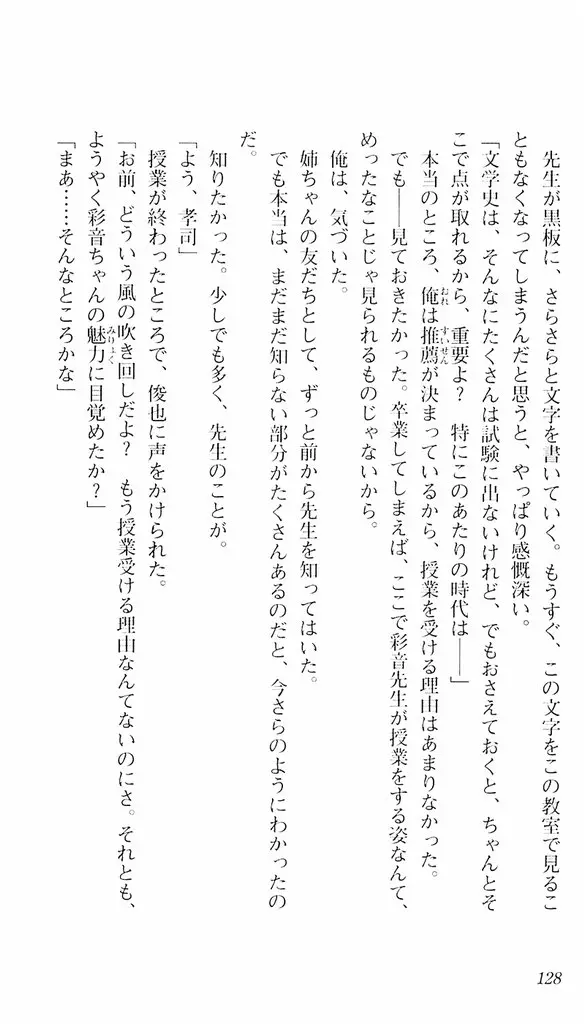 先生が黒板に、さらさらと文字を書いていく。もうすぐ、この文字をこの教室で見るこ
ともなくなってしまうんだと思うと、やっぱり感慨深い。
「文学史は、そんなにたくさんは試験に出ないけれど、でもおさえておくと、ちゃんとそ
こで点が取れるから、重要よ？　特にこのあたりの時代は――」
　本当のところ、俺は推薦が決まっているから、授業を受ける理由はあまりなかった。
　でも――見ておきたかった。卒業してしまえば、ここで彩音先生が授業をする姿なんて、
めったなことじゃ見られるものじゃないから。
　俺は、気づいた。
　姉ちゃんの友だちとして、ずっと前から先生を知ってはいた。
　でも本当は、まだまだ知らない部分がたくさんあるのだと、今さらのようにわかったの
だ。
　知りたかった。少しでも多く、先生のことが。
「よう、孝司」
　授業が終わったところで、俊也に声をかけられた。
「お前、どういう風の吹き回しだよ？　もう授業受ける理由なんてないのにさ。それとも、
ようやく彩音ちゃんの魅力に目覚めたか？」
「まあ……そんなところかな」
おれ
すいせん
みりょく
128